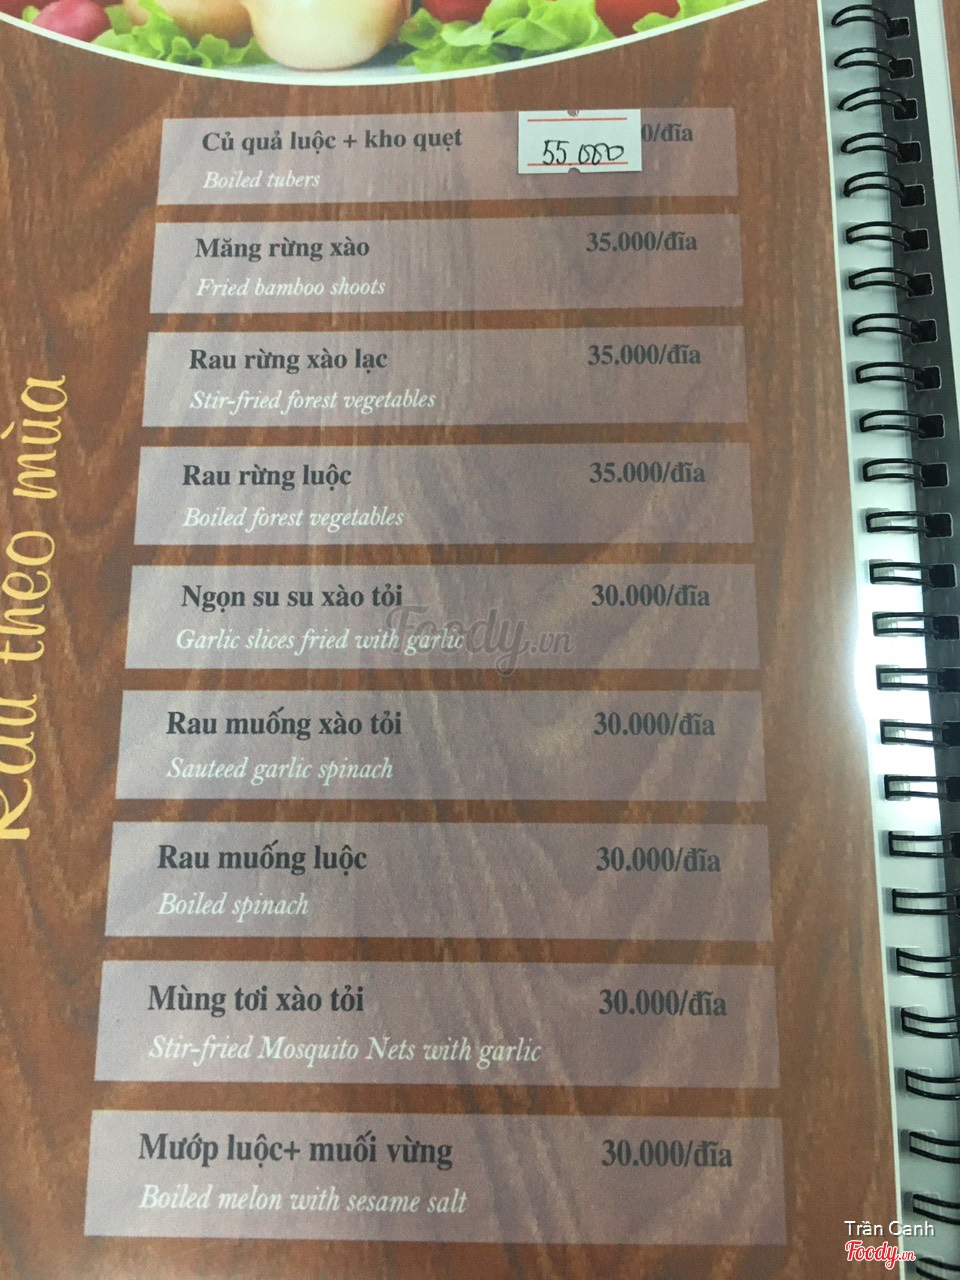 Rau theo mùa
Củ quả luộc + kho quẹt
55.000
0/đĩa
Boiled tubers
Măng rừng xào 35.000/đĩa
Fried bamboo shoots
Rau rừng xào lạc 35.000/đĩa
Stir-fried forest vegetables
Rau rừng luộc 35.000/đĩa
Boiled forest vegetables
Ngọn su su xào tỏi 30.000/đĩa
Garlic slices fried with garlic
Foody.vn
Rau muống xào tỏi 30.000/đĩa
Sauteed garlic spinach
Rau muống luộc 30.000/đĩa
Boiled spinach
Mùng tơi xào tỏi 30.000/đĩa
Stir-fried Mosquito Nets with garlic
Mướp luộc+ muối vừng 30.000/đĩa
Boiled melon with sesame salt
Trần Canh
Foody.vn